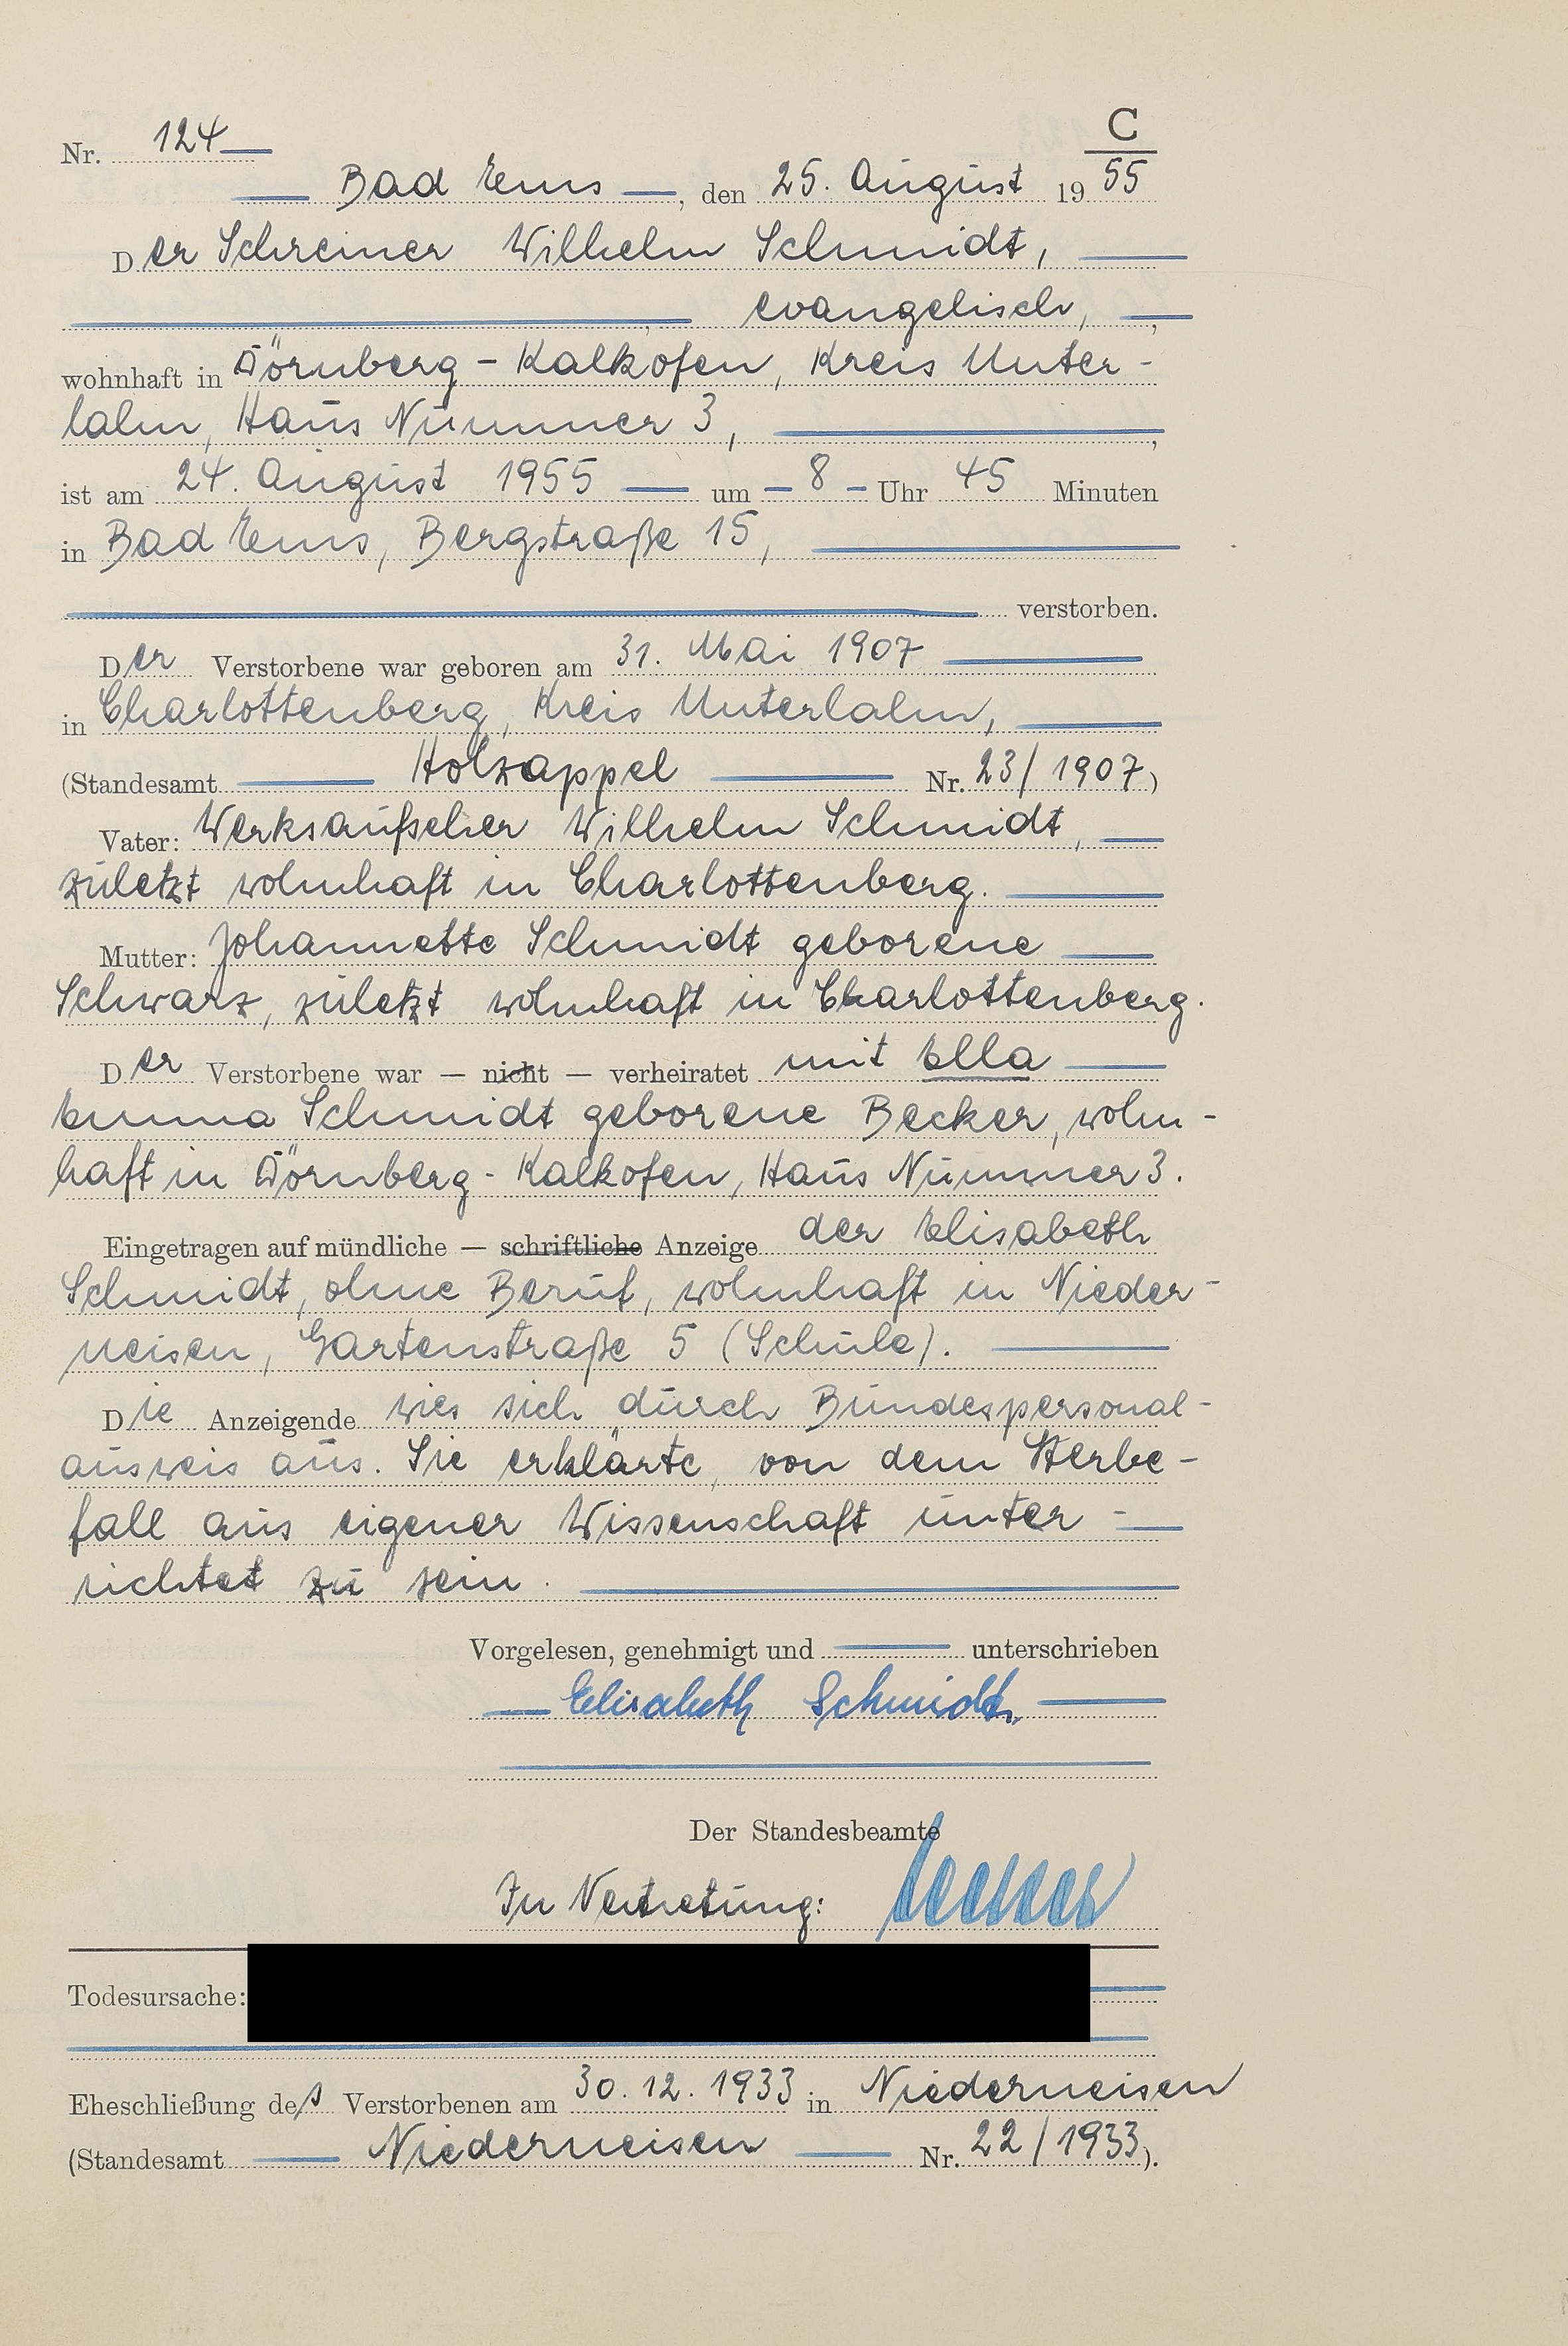 C
Nr. 124
Bad Ems, den 25. August 1955
Der Schreiner Wilhelm Schmidt,
evangelisch,
wohnhaft in Dörnberg - Kalkofen, Kreis Unter-
lahn, Haus Nummer 3,
ist am 24. August 1955 um 8 Uhr 45 Minuten
in Bad Ems, Bergstraße 15,
verstorben.
Der Verstorbene war geboren am 31. Mai 1907
in Charlottenberg, Kreis Unterlahn,
(Standesamt Holzappel Nr. 23/1907)
Vater: Werksaufseher Wilhelm Schmidt,
zuletzt wohnhaft in Charlottenberg.
Mutter: Johannette Schmidt geborene
Schwarz, zuletzt wohnhaft in Charlottenberg.
Der Verstorbene war — nicht — verheiratet mit Ella
Emma Schmidt geborene Becker, wohn-
haft in Dörnberg - Kalkofen, Haus Nummer 3.
Eingetragen auf mündliche — schriftliche Anzeige der Elisabeth
Schmidt, ohne Beruf, wohnhaft in Nieder-
neisen, Gartenstraße 5 (Schule).
Die Anzeigende wies sich durch Bundespersonal-
ausweis aus. Sie erklärte, von dem Sterbe-
fall aus eigener Wissenschaft unter-
richtet zu sein.
Vorgelesen, genehmigt und unterschrieben
Elisabeth Schmidt
Der Standesbeamte
In Vertretung:
Todesursache:
Eheschließung des Verstorbenen am 30.12.1933 in Niederneisen
(Standesamt Niederneisen Nr. 22/1933).